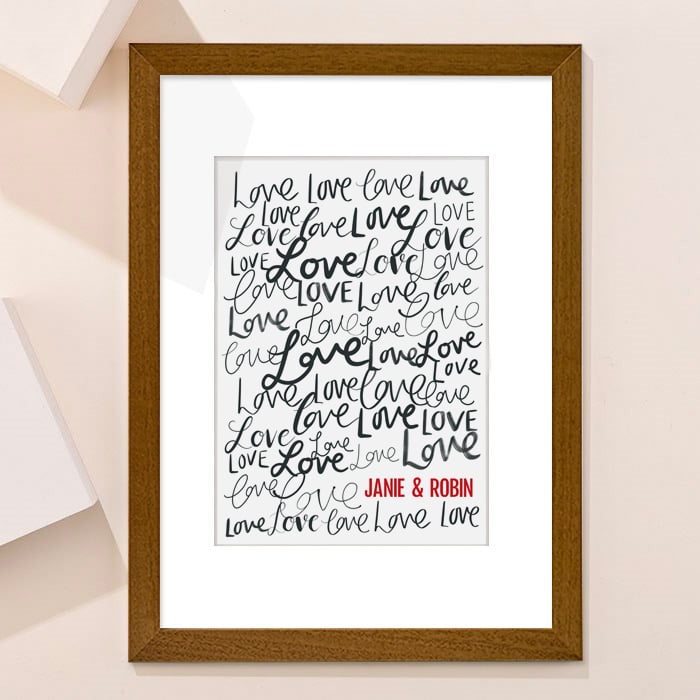 Love Love Love Love
Love Love Love LOVE
Love Love Love
LOVE Love Love Love
Love LOVE Love Love
Love Love Love Love
Love Love Love Love
Love
Love Love Love Love
Love Love LOVE
Love Love Love
LOVE Love Love
Love Love JANIE & ROBIN
Love Love Love Love Love